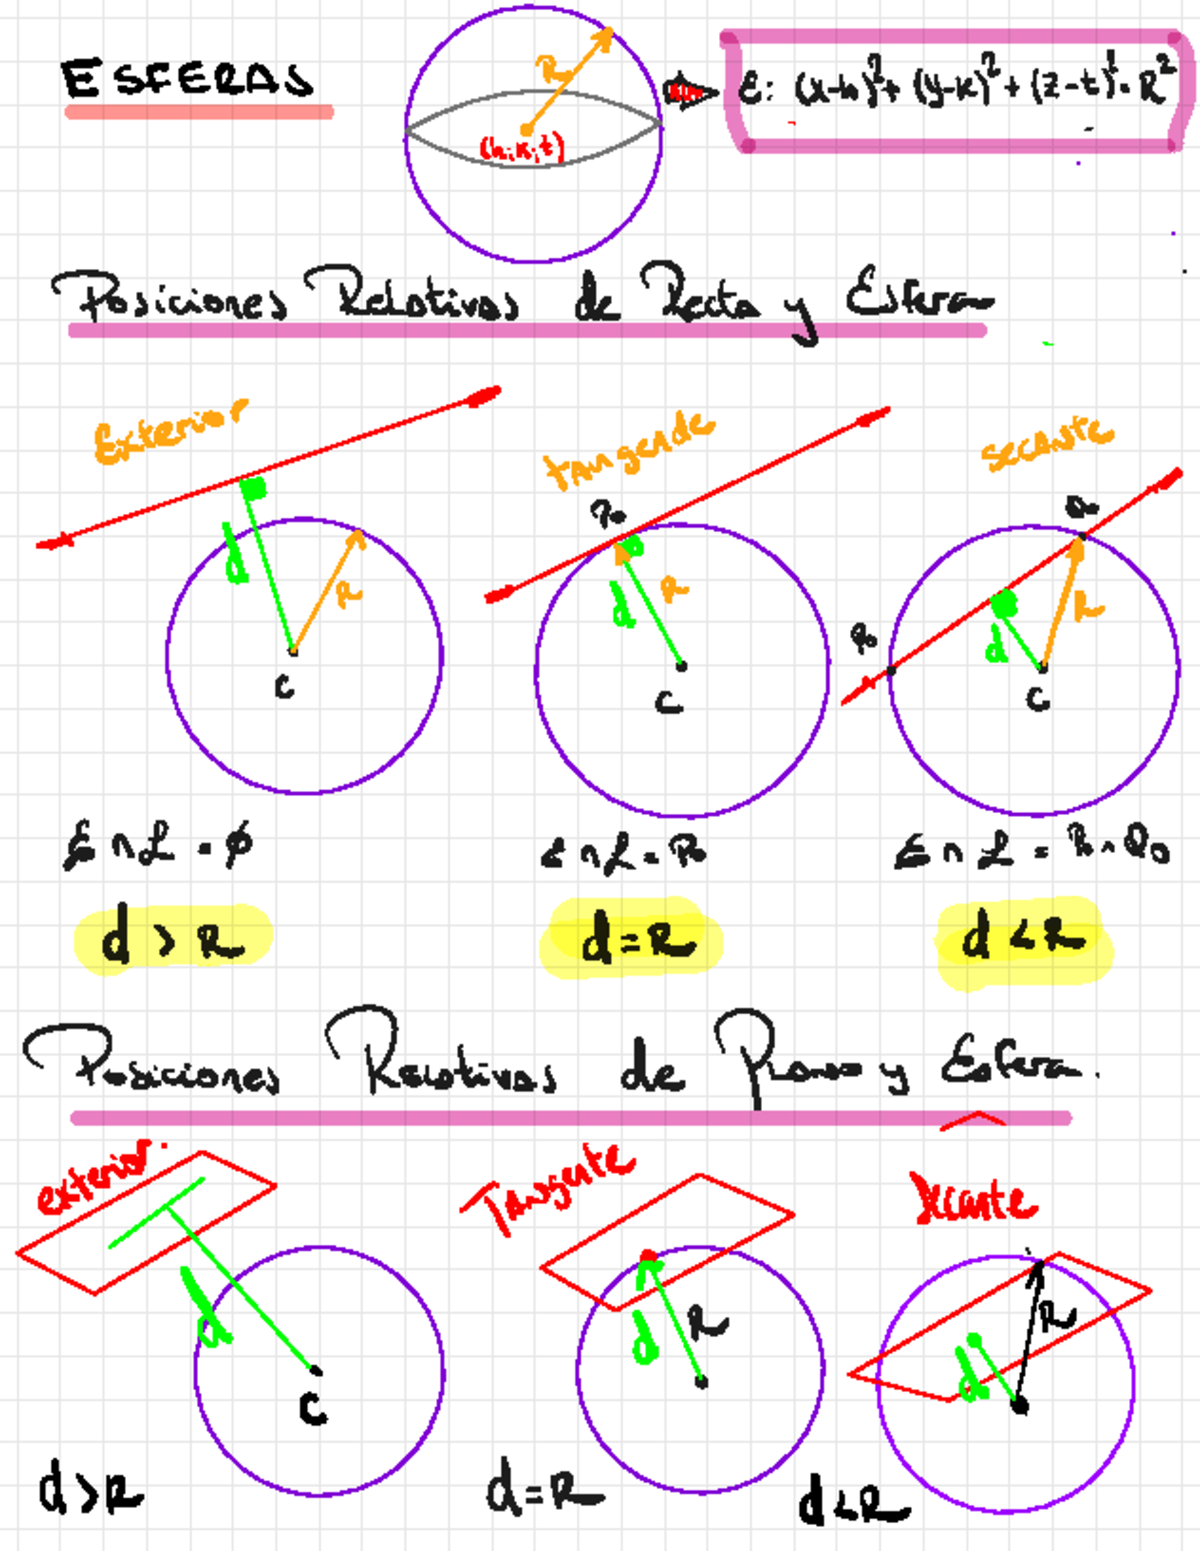 ESFERAS
R
(h,k,t)
E: (x-h)²+ (y-k)²+(z-t)²=R²
Posiciones Relativas de Recta y Esfera
Exterior
tangende
secante
d
R
C
P₀
d
R
C
Q₀
P₀
d
R
C
E ∩ L = ∅
E ∩ L = P₀
E ∩ L = P₀ ∧ Q₀
d > R
d = R
d < R
Posiciones Relativas de Plano y Esfera.
exterior.
Tangente
Secante
d
C
d
R
d
R
d > R
d = R
d < R